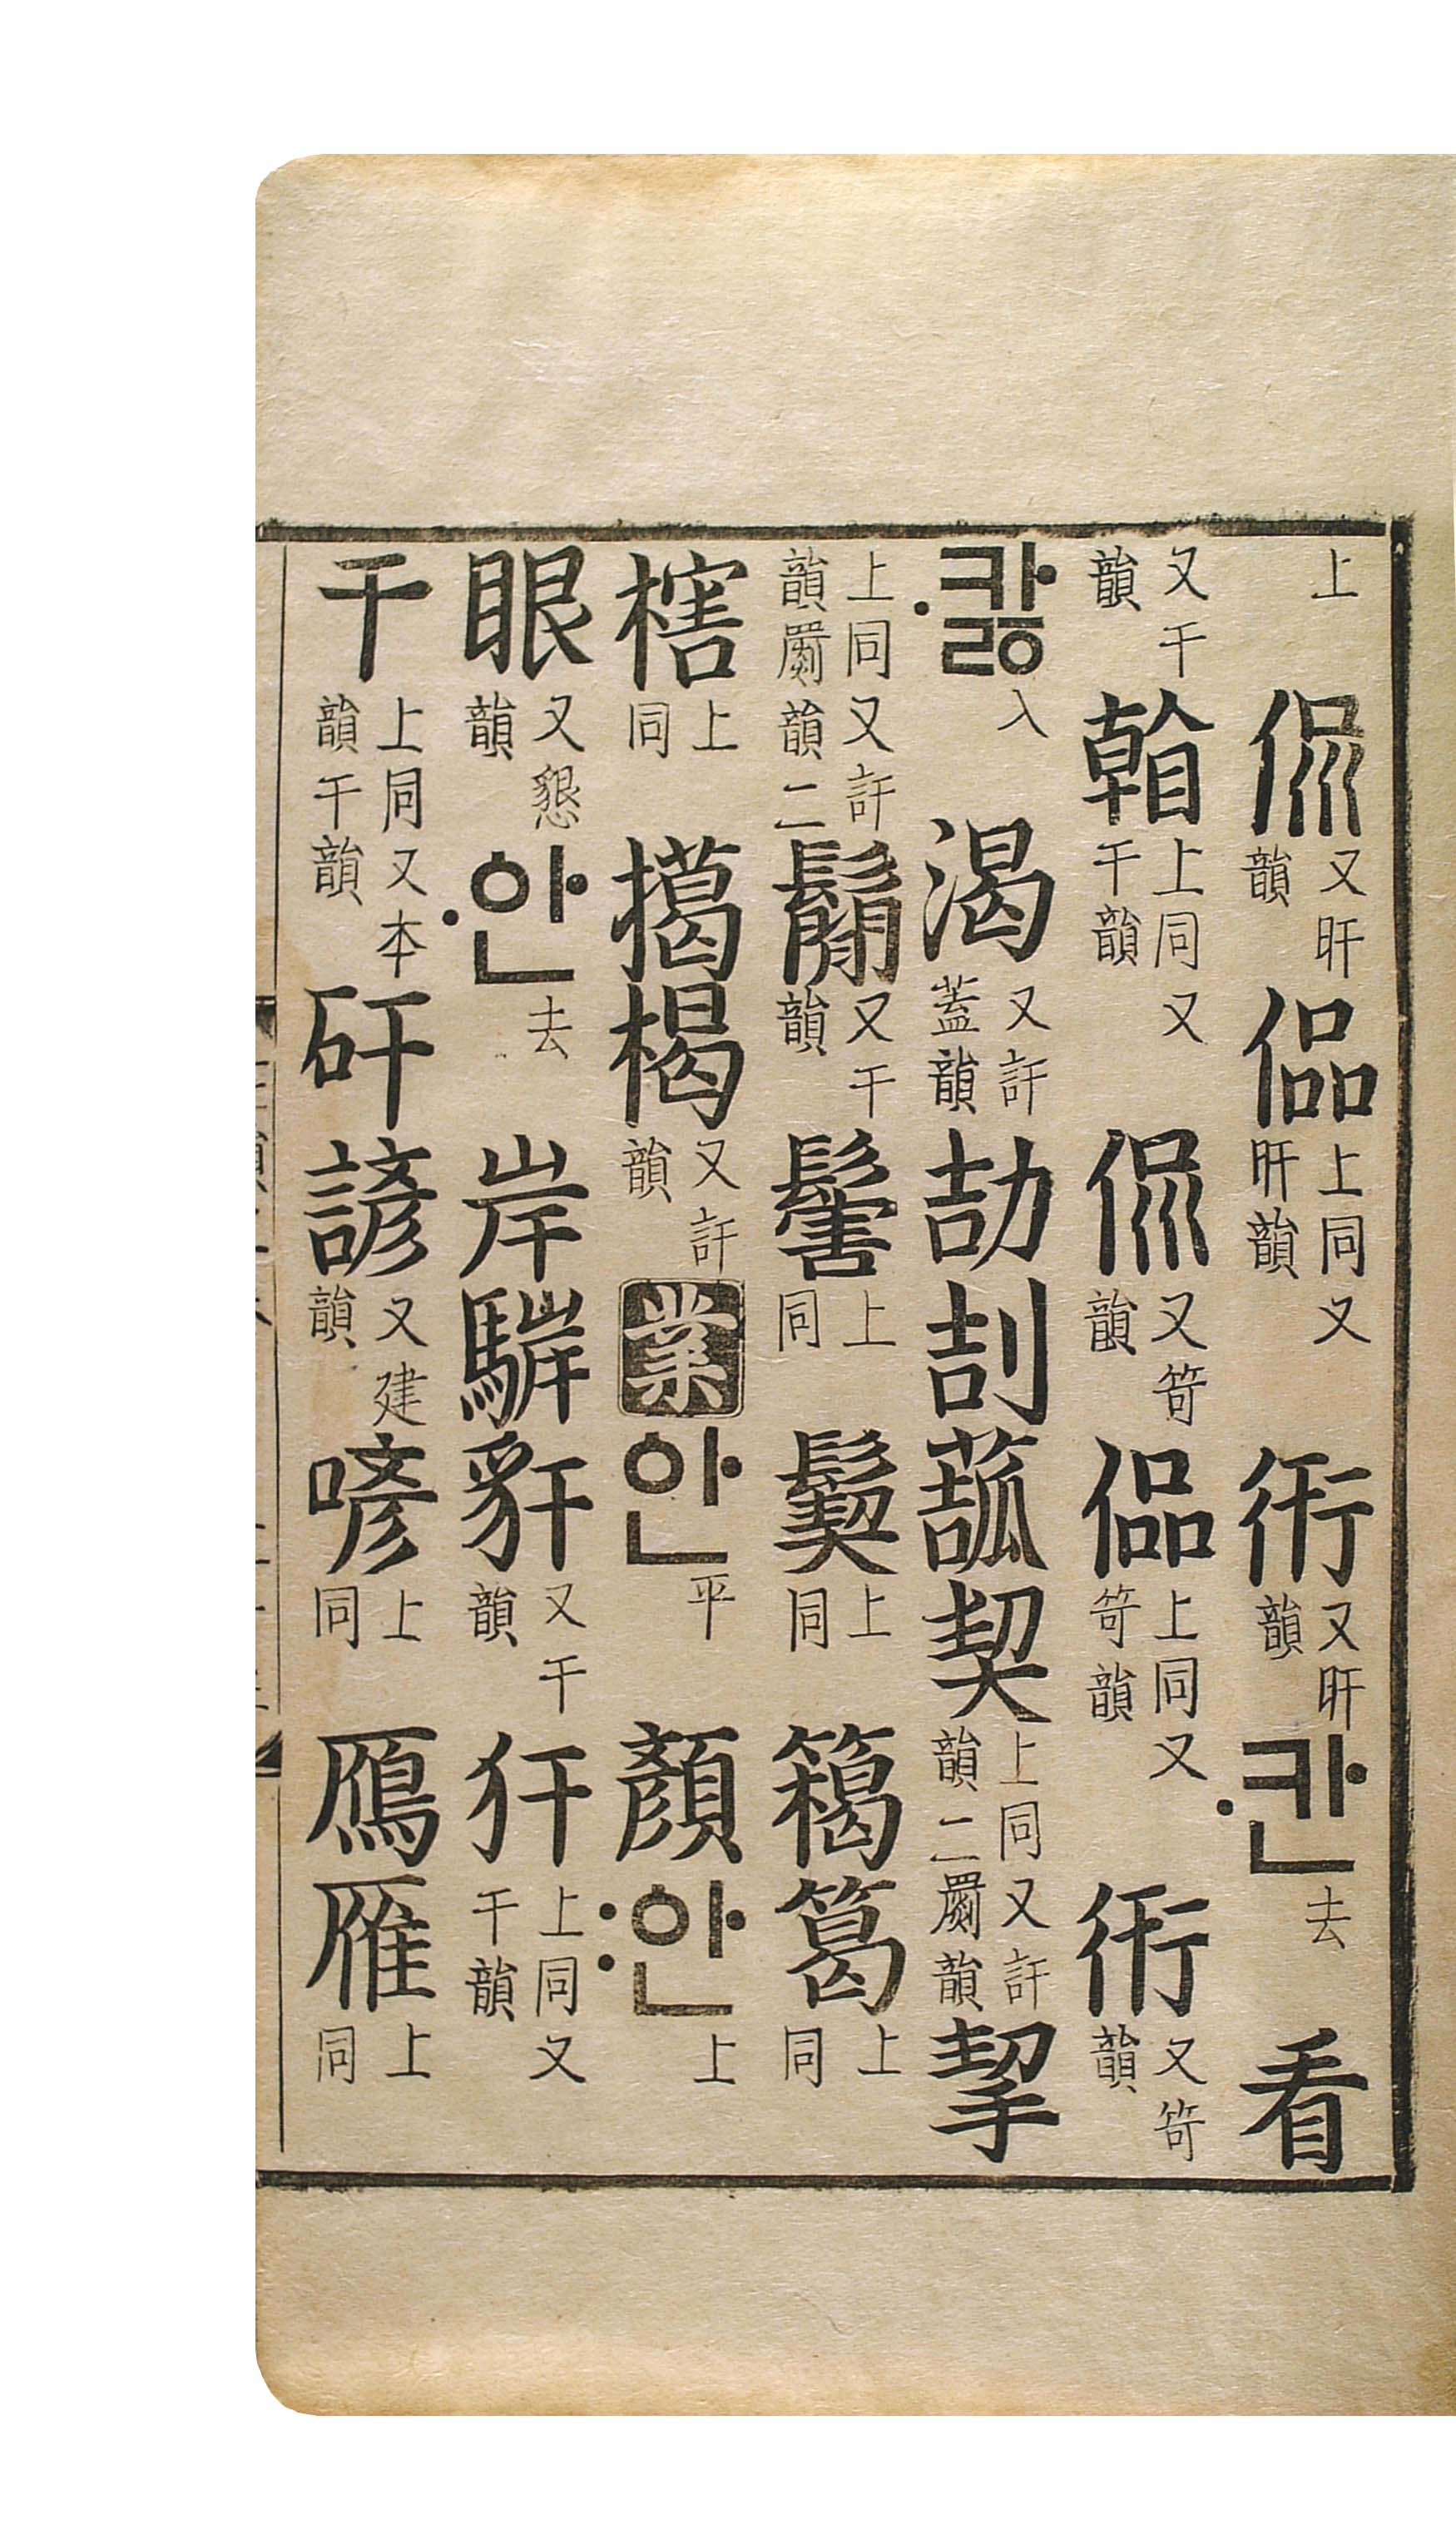 上侃又旰韻偘上同又旰韻衎又旰韻〮칸去看
又干韻侃又笴韻偘上同又笴韻衎又笴韻
〮캃入渴又訐蓋韻劼㓤契上同又訐韻二罽韻挈
上同又訐韻罽韻二鬜又干韻上同上同䈓上同
上同揭楬又訐韻業안平顔〯안上
眼又懇韻〮안去岸䮗豻又干韻犴上同又干韻
干上同又本韻干韻矸諺又建韻喭上同鴈雁上同